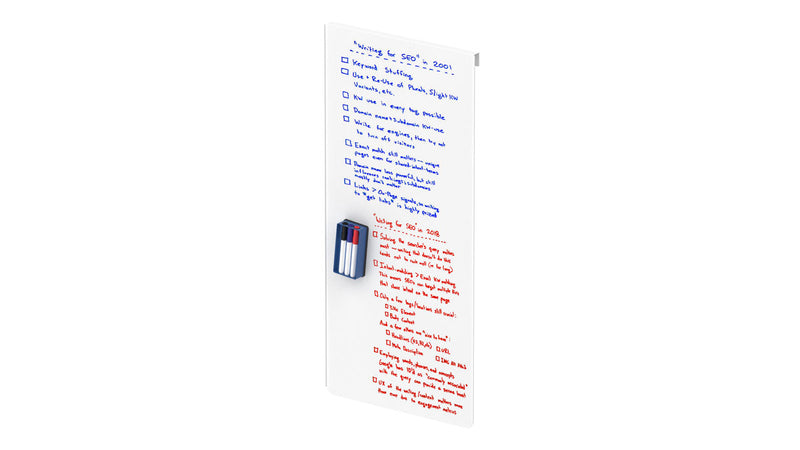 "Writing for SEO" in 2001
Keyword Stuffing
Use + Re-Use of Plurals, Slight KW
Variants, etc.
KW use in every tag possible
Domain name + Subdomain KW-use
Write for engines, then try not
to turn off visitors
Exact match still matters — unique
pages even for shared-intent-terms
Domain name less powerful, but still
influences rankings; subdomains
mostly don't matter
Links > On-Page signals, so writing
to "get links" is highly prized
"Writing for SEO" in 2018
Solving the searcher's query matters
most — writing that doesn't do this
tends not to rank well (or for long)
Intent-matching > Exact KW matching
This means SEOs can target multiple KWs
that share intent on the same page
Only a few tags/locations still crucial:
Title Element
Body Content
And a few others are "nice to have":
Headlines
URL
Meta Description
Employing words, phrases, and concepts
Google has ID'd as "commonly associated"
with the query can provide a boost
UX of the writing/content matters more
than ever due to engagement metrics